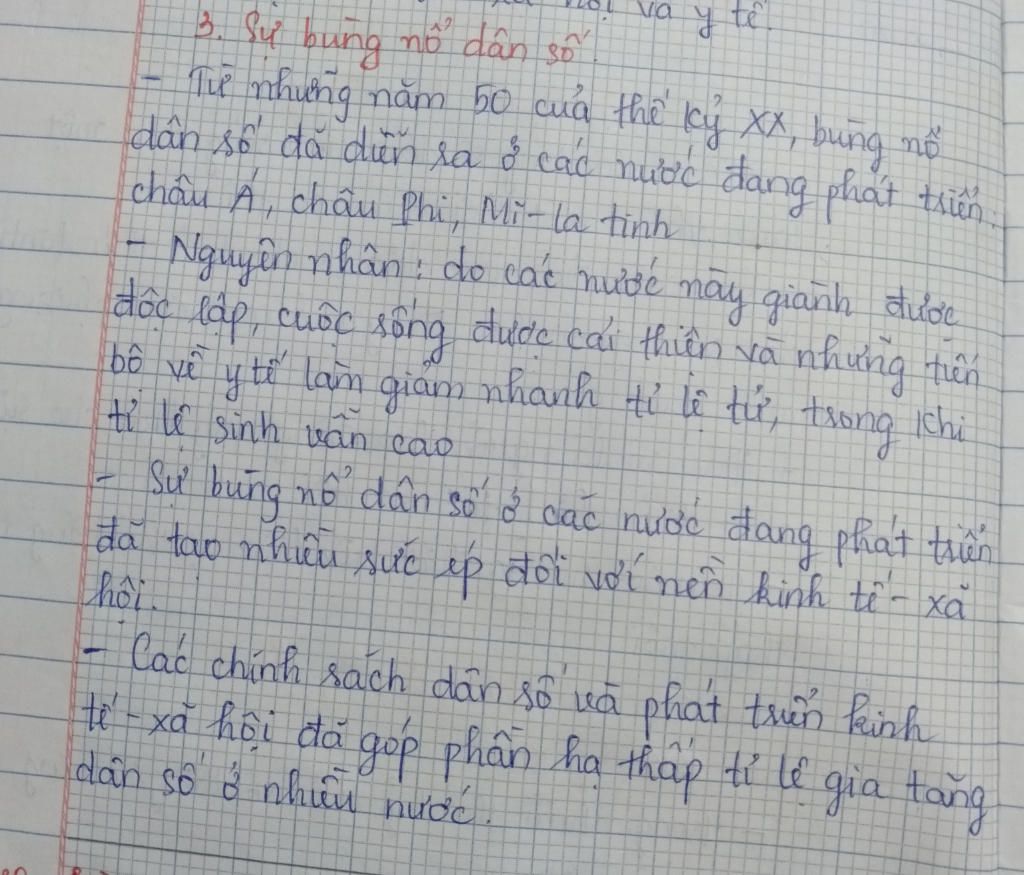 và y tế.
3. Sự bùng nổ dân số.
- Từ những năm 50 của thế kỷ XX, bùng nổ
dân số đã diễn ra ở các nước đang phát triển
châu Á, châu Phi, Mĩ-la tinh
- Nguyên nhân: do các nước này giành được
độc lập, cuộc sống được cải thiện và những tiến
bộ về y tế làm giảm nhanh tỉ lệ tử, trong khi
tỉ lệ sinh vẫn cao
- Sự bùng nổ dân số ở các nước đang phát triển
đã tạo nhiều sức ép đối với nền kinh tế - xã
hội.
- Các chính sách dân số và phát triển kinh
tế - xã hội đã góp phần hạ thấp tỉ lệ gia tăng
dân số ở nhiều nước.